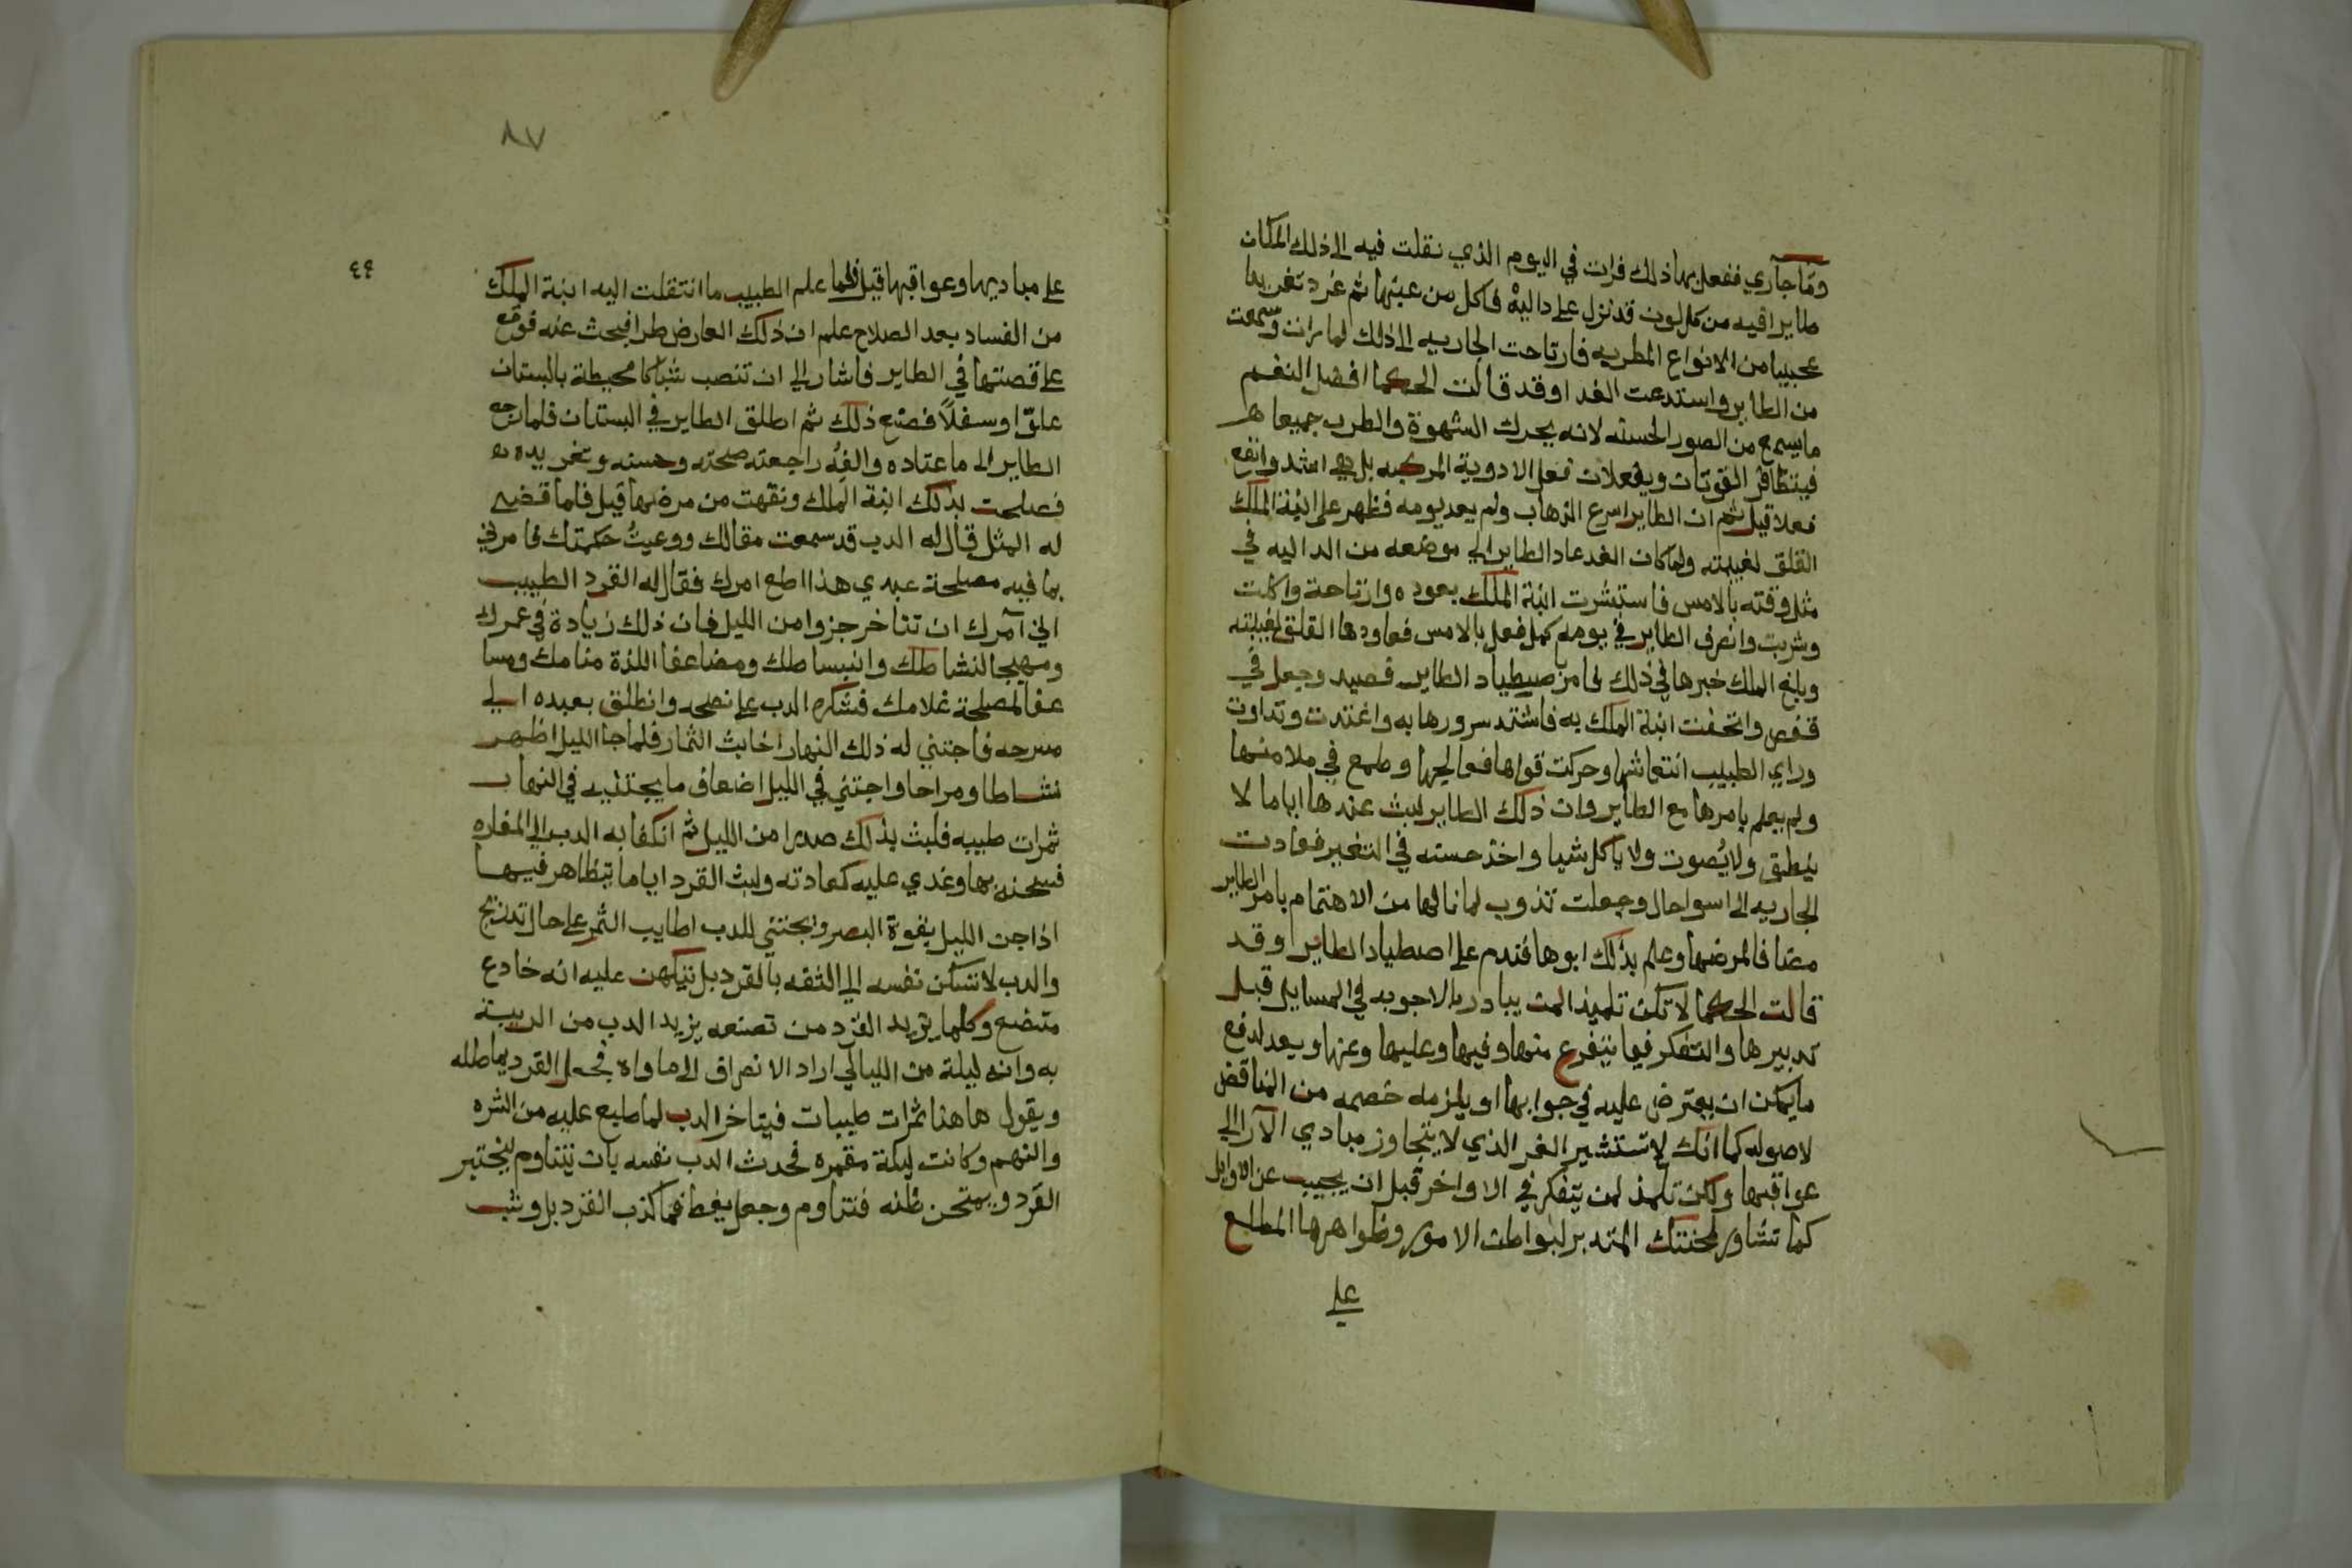 وما جاري ففعل بها ذلك فرات في اليوم الذي نقلت فيه الى ذلك المكان
طايرا فيه من كل لون قد نزل على دالية فاكل من عنبها ثم غرد تغريدا
عجيبا من الانواع المطربه فارتاحت الجاريه الى ذلك لما رات وسمعت
من الطاير واستدعت الغدا وقد قالت الحكما افضل النغم
ما يسمع من الصور الحسنه لانه يحرك الشهوة والطرب جميعا
فيتظافر القوتان ويفعلان فعل الادوية المركبه بل هي اشد وانفع
فعلا قيل ثم ان الطاير اسرع الذهاب ولم يعد يومه فظهر على ابنة الملك
القلق لغيبته ولما كان الغد عاد الطاير الى موضعه من الداليه في
مثل وقته بالامس فاستبشرت ابنة الملك بعوده وارتاحة واكلت
وشربت وانصرف الطاير في يومه كمل فعل بالامس فعاودها القلق لغيبته
وبلغ الملك خبرها في ذلك فامر صيطياد الطاير فصيد وجعل في
قفص واتحفت ابنة الملك به فاشتد سرورها به واغتدت وتداوت
وراي الطبيب انتعاشها وحركت قواها فعالجها وطمع في ملامنها
ولم يعلم بامرها مع الطاير وان ذلك الطاير لبث عندها اياما لا
ينطق ولا يصوت ولا ياكل شيا واخذ حسنه في التغير فعادت
الجاريه الى اسوا حال وجعلت تذوب لما نالها من الاهتمام بامر الطاير
مضافا لمرضها وعلم بذلك ابوها فندم على اصطياد الطاير وقد
قالت الحكما لا تكن تلميذا لمن يبادر بالاجوبه في المسايل قبل
تدبيرها والتفكر فيما يتفرع منها وفيها وعليها وعنها ويعد لدفع
ما يمكن ان يعترض عليه في جوابها او يلزمه خصمه من المناقض
لاصوله كما انك لا تستشير الغر الذي لا يتجاوز مبادي الآرا الى
عواقبها ولكن تلمذ لمن يتفكر في الاواخر قبل ان يجيب عن الاوايل
كما تشاور لمحنتك المتدبر لبواطن الامور وظواهرها المطلع
على
٨٧
٤٩
على مباديها وعواقبها قيل فلما علم الطبيب ما انتقلت اليه ابنة الملك
من الفساد بعد الصلاح علم ان ذلك العارض طرا فبحث عنه فوقع
على قصتها في الطاير فاشار الى ان تنصب شباكا محيطة بالبستان
علوا وسفلا فصنع ذلك ثم اطلق الطاير في البستان فلما رجع
الطاير الى ما عتاده والفه راجعته صحته وحسنه وتغريده
فصلحت بذلك ابنة الملك ونقهت من مرضها قيل فلما قضى
له المثل قال له الدب قد سمعت مقالك ووعيت حكمتك فامرني
بما فيه مصلحة عبدي هذا اطع امرك فقال له القرد الطبيب
اني آمرك ان تتاخر جزوا من الليل فان ذلك زيادة في عمرك
ومهيجا لنشاطك وانبساطك ومضاعفا للذة منامك ومسا
عفا لمصلحة غلامك فشكره الدب على نصحه وانطلق بعبده الى
مسرحه فاجتني له ذلك النهار اخابث الثمار فلما جا الليل اظهر
نشاطا ومراحا واجتني في الليل اضعاف ما يجتنيه في النهار
ثمرات طيبه فلبث بذلك صدرا من الليل ثم انكفا به الدب الى المغاره
فسجنه بها وغدي عليه كعادته ولبث القرد اياما يتظاهر فيها
اذا جن الليل بقوة البصر ويجتني للدب اطايب الثمر على حال تدريج
والدب لا تسكن نفسه الى الثقه بالقرد بل يتكهن عليه انه خادع
متصنع وكلما يزيد القرد من تصنعه يزيد الدب من الريبة
به وانه ليلة من الليالي اراد الانصراف الى ماواه فجعل القرد يماطله
ويقول هاهنا ثمرات طيبات فيتاخر الدب لما طبع عليه من الشره
والنهم وكانت ليلة مقمره فحدث الدب نفسه بان يتناوم ليختبر
القرد ويمتحن ظنه فتناوم وجعل يغط فما كذب القرد بل وثب